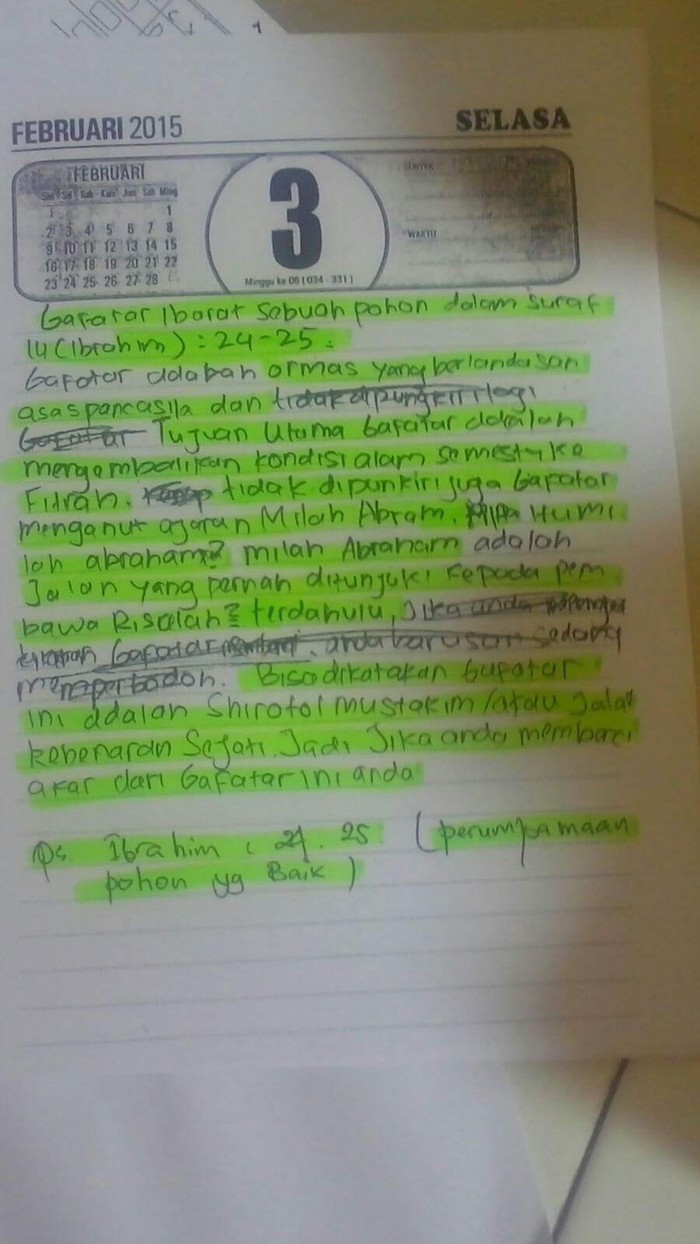 FEBRUARI 2015
SELASA
FEBRUARI
1
2 3 4 5 6 7 8
9 10 11 12 13 14 15
16 17 18 19 20 21 22
23 24 25 26 27 28
3
Minggu ke 06 (034 - 331)
WAKTU
Gafatar Ibarat sebuah pohon dalam surat
14 (Ibrohim) : 24-25.
Gafatar adalah ormas yang berlandasan
asas pancasila dan tidak dipungkiri lagi
Gafatar Tujuan Utama Gafatar adalah
mengembalikan kondisi alam semesta ke
Fitrah. tidak dipunkiri juga Gafatar
menganut ajaran Milah Abram,
loh abraham? milah Abraham adalah
Jalan yang pernah ditunjuki kepada pem
bawa Risalah² terdahulu, Jika anda
Gafatar anda barusan sedang
memperbodoh. Bisa dikatakan Gafatar
ini adalah Shirotol mustakim /atau Jalan
kebenaran Sejati. Jadi Jika anda
akar dari Gafatar ini anda
Qs Ibrahim : 24. 25 (perumpamaan
pohon yg Baik )